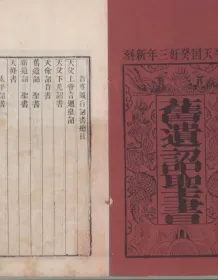 天囯癸好三年新刻
舊遺詔聖書
旨准頒行詔書總目
天父上帝言題皇詔
天父下凡詔書
天命詔旨書
舊遺詔聖書
天條書